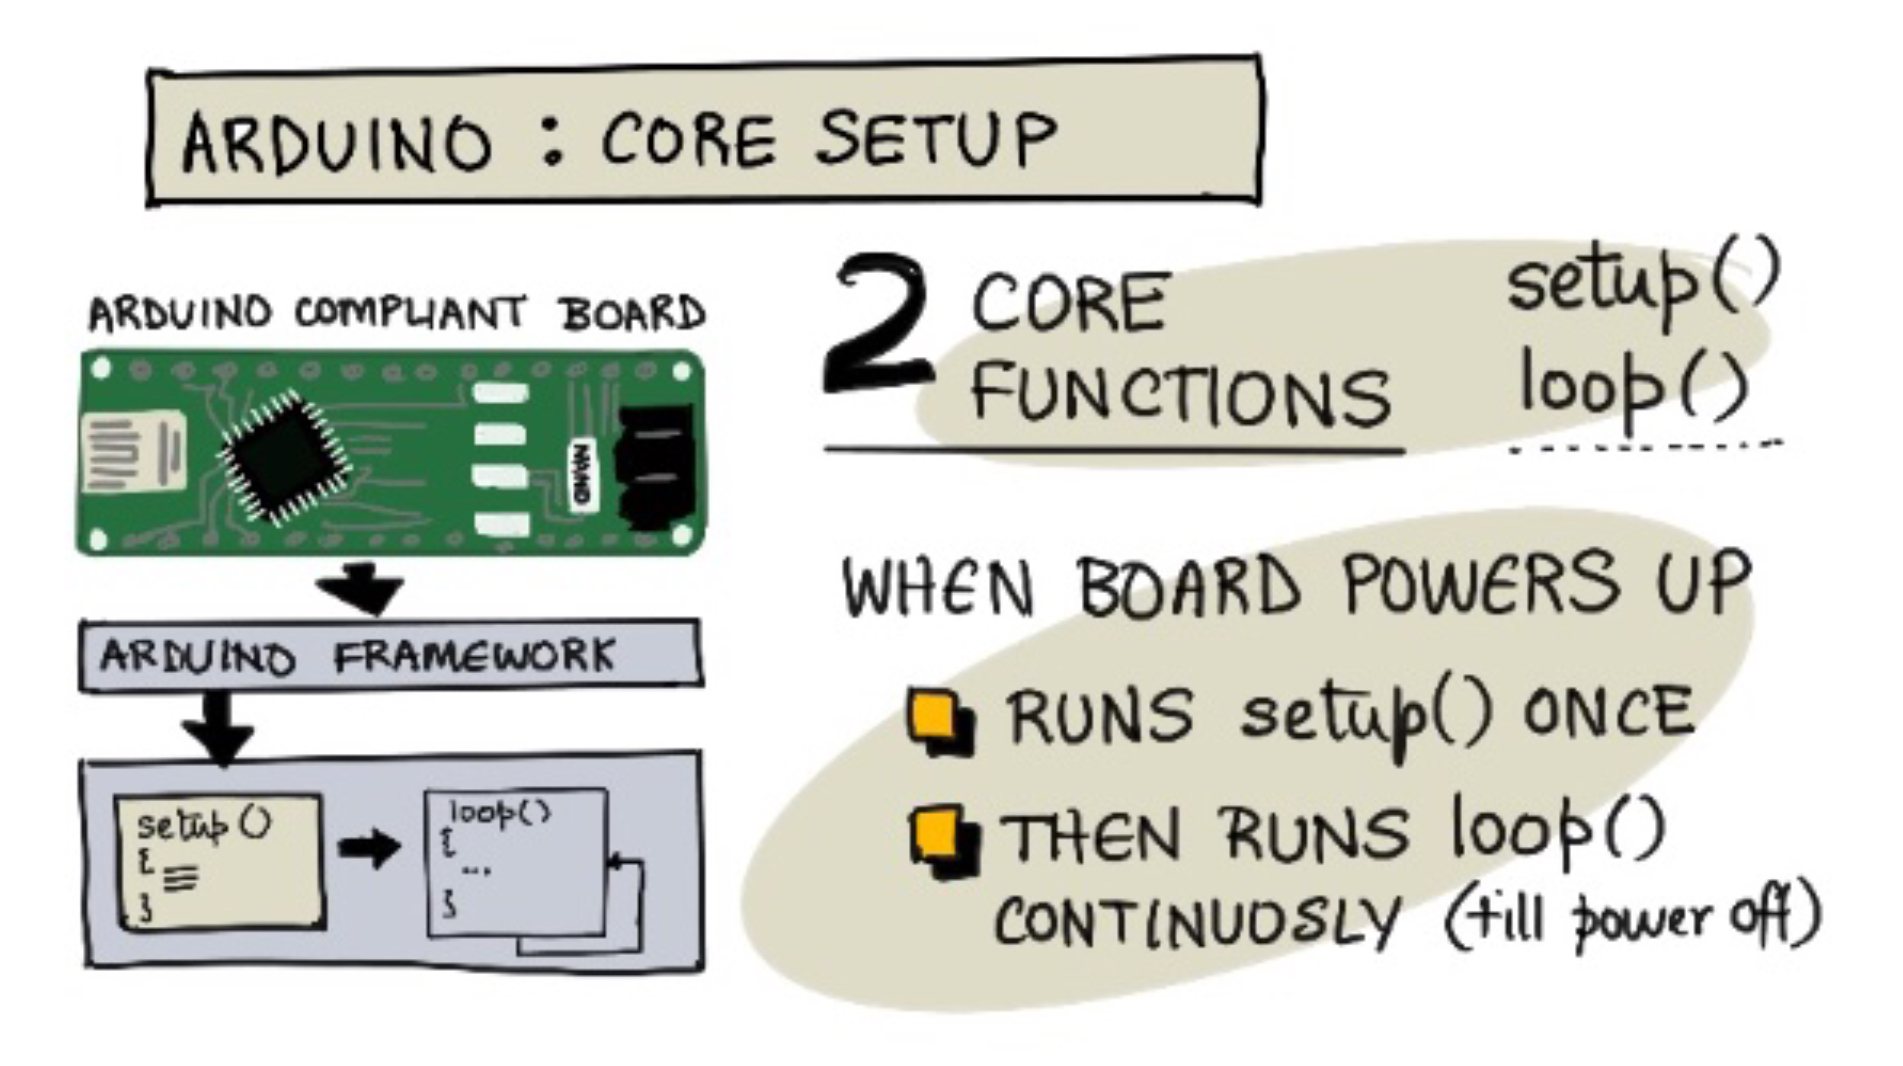 ARDUINO : CORE SETUP
ARDUINO COMPLIANT BOARD
NANO
ARDUINO FRAMEWORK
setup()
{
}
loop()
{
...
}
2 CORE
FUNCTIONS
setup()
loop()
WHEN BOARD POWERS UP
RUNS setup() ONCE
THEN RUNS loop()
CONTINUOSLY (till power off)